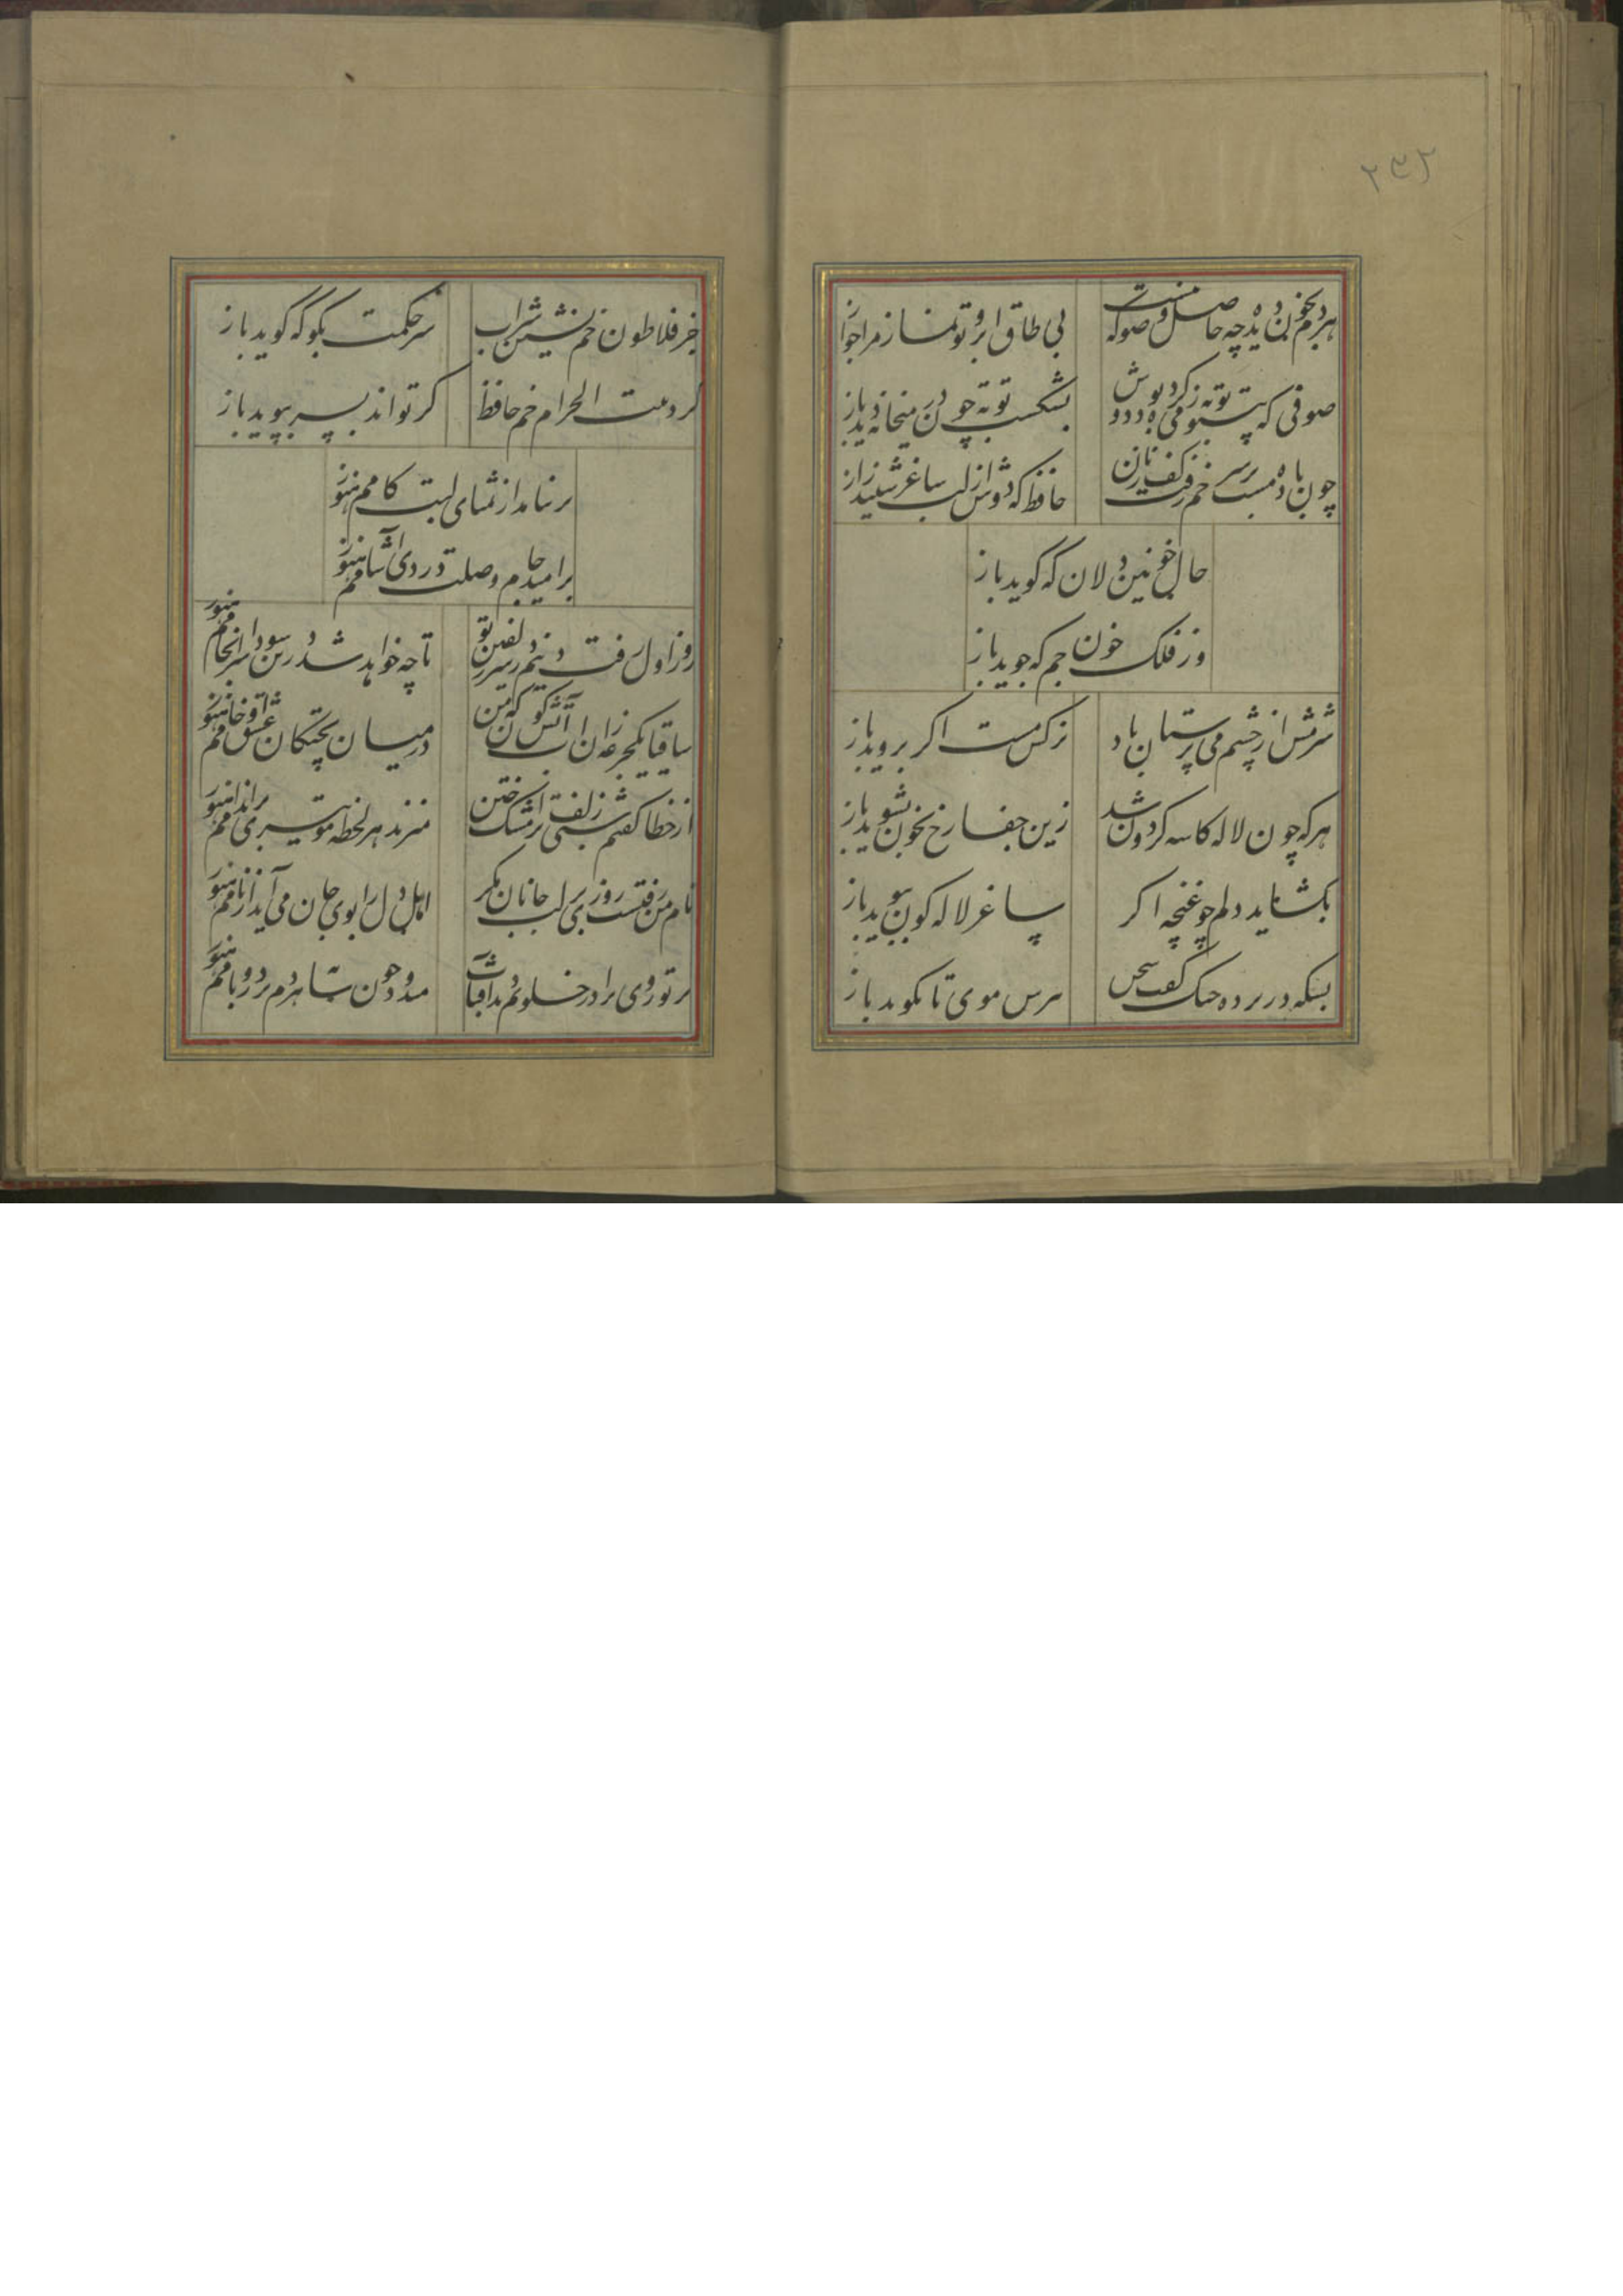 ۲۳۲
هردم بخون دیده چه حاصل وضو که نیست
بی طاق ابروی تو نماز مرا جواز
صوفی که بی تو توبه ز می کرده بود دوش
بشکست توبه چون در میخانه دید باز
چون باده مست بر سر خم رفت کف زنان
حافظ که دوش از لب ساغر شنید راز
حال خونین دلان که گوید باز
وز فلک خون جم که جوید باز
شرمش از چشم می پرستان باد
نرکس مست اکر بروید باز
هرکه چون لاله کاسه کردان شد
زین جفا رخ بخون بشوید باز
بکشاید دلم چو غنچه اکر
ساغر لاله کون ببوید باز
بسکه در پرده چنک کفت سخن
ببرش موی تا نکوید باز
جز فلاطون خم نشین شراب
سر حکمت بکو که کوید باز
کرد بیت الحرام خم حافظ
کر تواند بسر بپوید باز
برنیامد از تمنای لبت کامم هنوز
بر امید جام وصلت دردی آشامم هنوز
روز اول رفت دینم بر سر زلفین تو
تا چه خواهد شد درین سودا سرانجامم هنوز
ساقیا یکجرعه زان آب آتشکون که من
در میان پختکان عشق او خامم هنوز
از خطا کفتم شبی زلفت ترا مشک ختن
میزند هر لحظه موی تیری بر اندامم هنوز
نام من رفتست روزی بر لب جانان مکر
اهل دل را بوی جان می آید از نامم هنوز
پرتو روی ترا در خلوتم دید آفتاب
میدود چون سایه هردم بر در و بامم هنوز